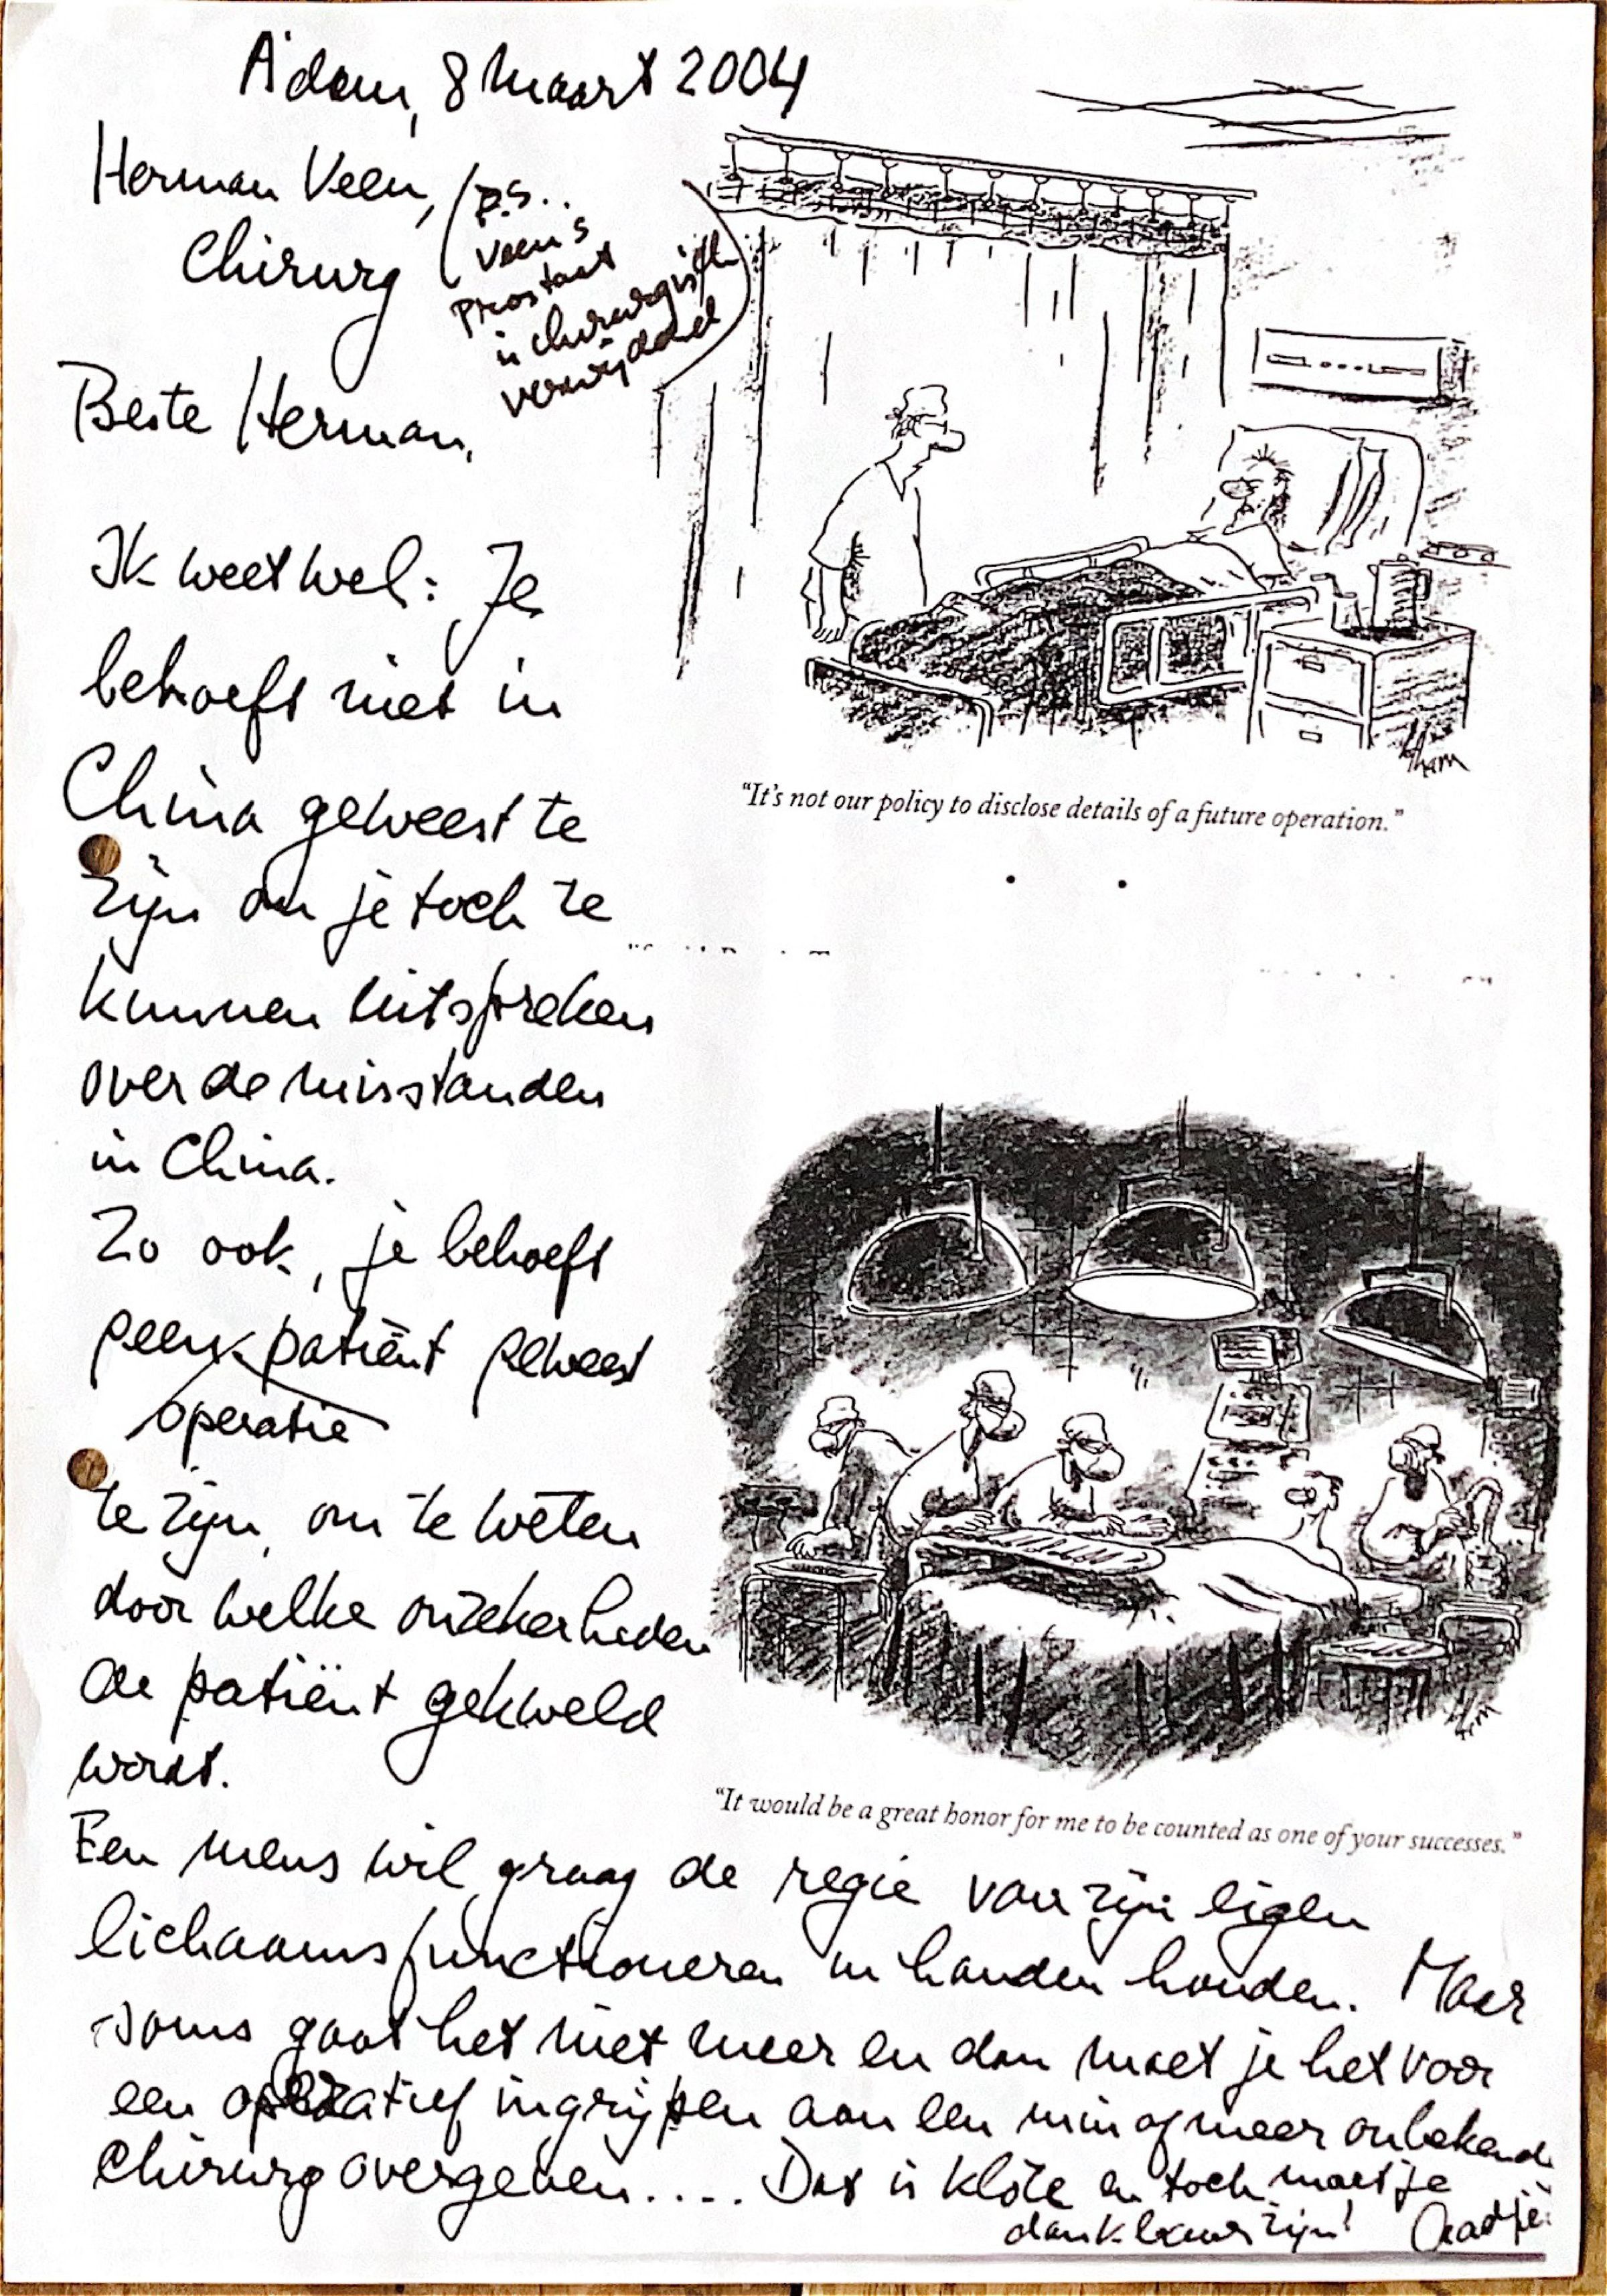 A'dam, 8 maart 2004
Herman Veen,
Chirurg
(p.s..
Veen's
prostaat
is chirurgisch
verwijderd)
Beste Herman,
Ik weet wel: Je
behoeft niet in
China geweest te
zijn om je toch te
kunnen uitspreken
over de misstanden
in China.
Zo ook, je behoeft
geen patiënt geweest
operatie
te zijn, om te weten
door welke onzekerheden
de patiënt gekweld
wordt.
Een mens wil graag de regie van zijn eigen
lichaamsfunctioneren in handen houden. Maar
soms gaat het niet meer en dan moet je het voor
een operatief ingrijpen aan een min of meer onbekende
chirurg overgeven.... Dat is klote en toch moet je
dankbaar zijn! Aadje.
"It's not our policy to disclose details of a future operation."
"It would be a great honor for me to be counted as one of your successes."